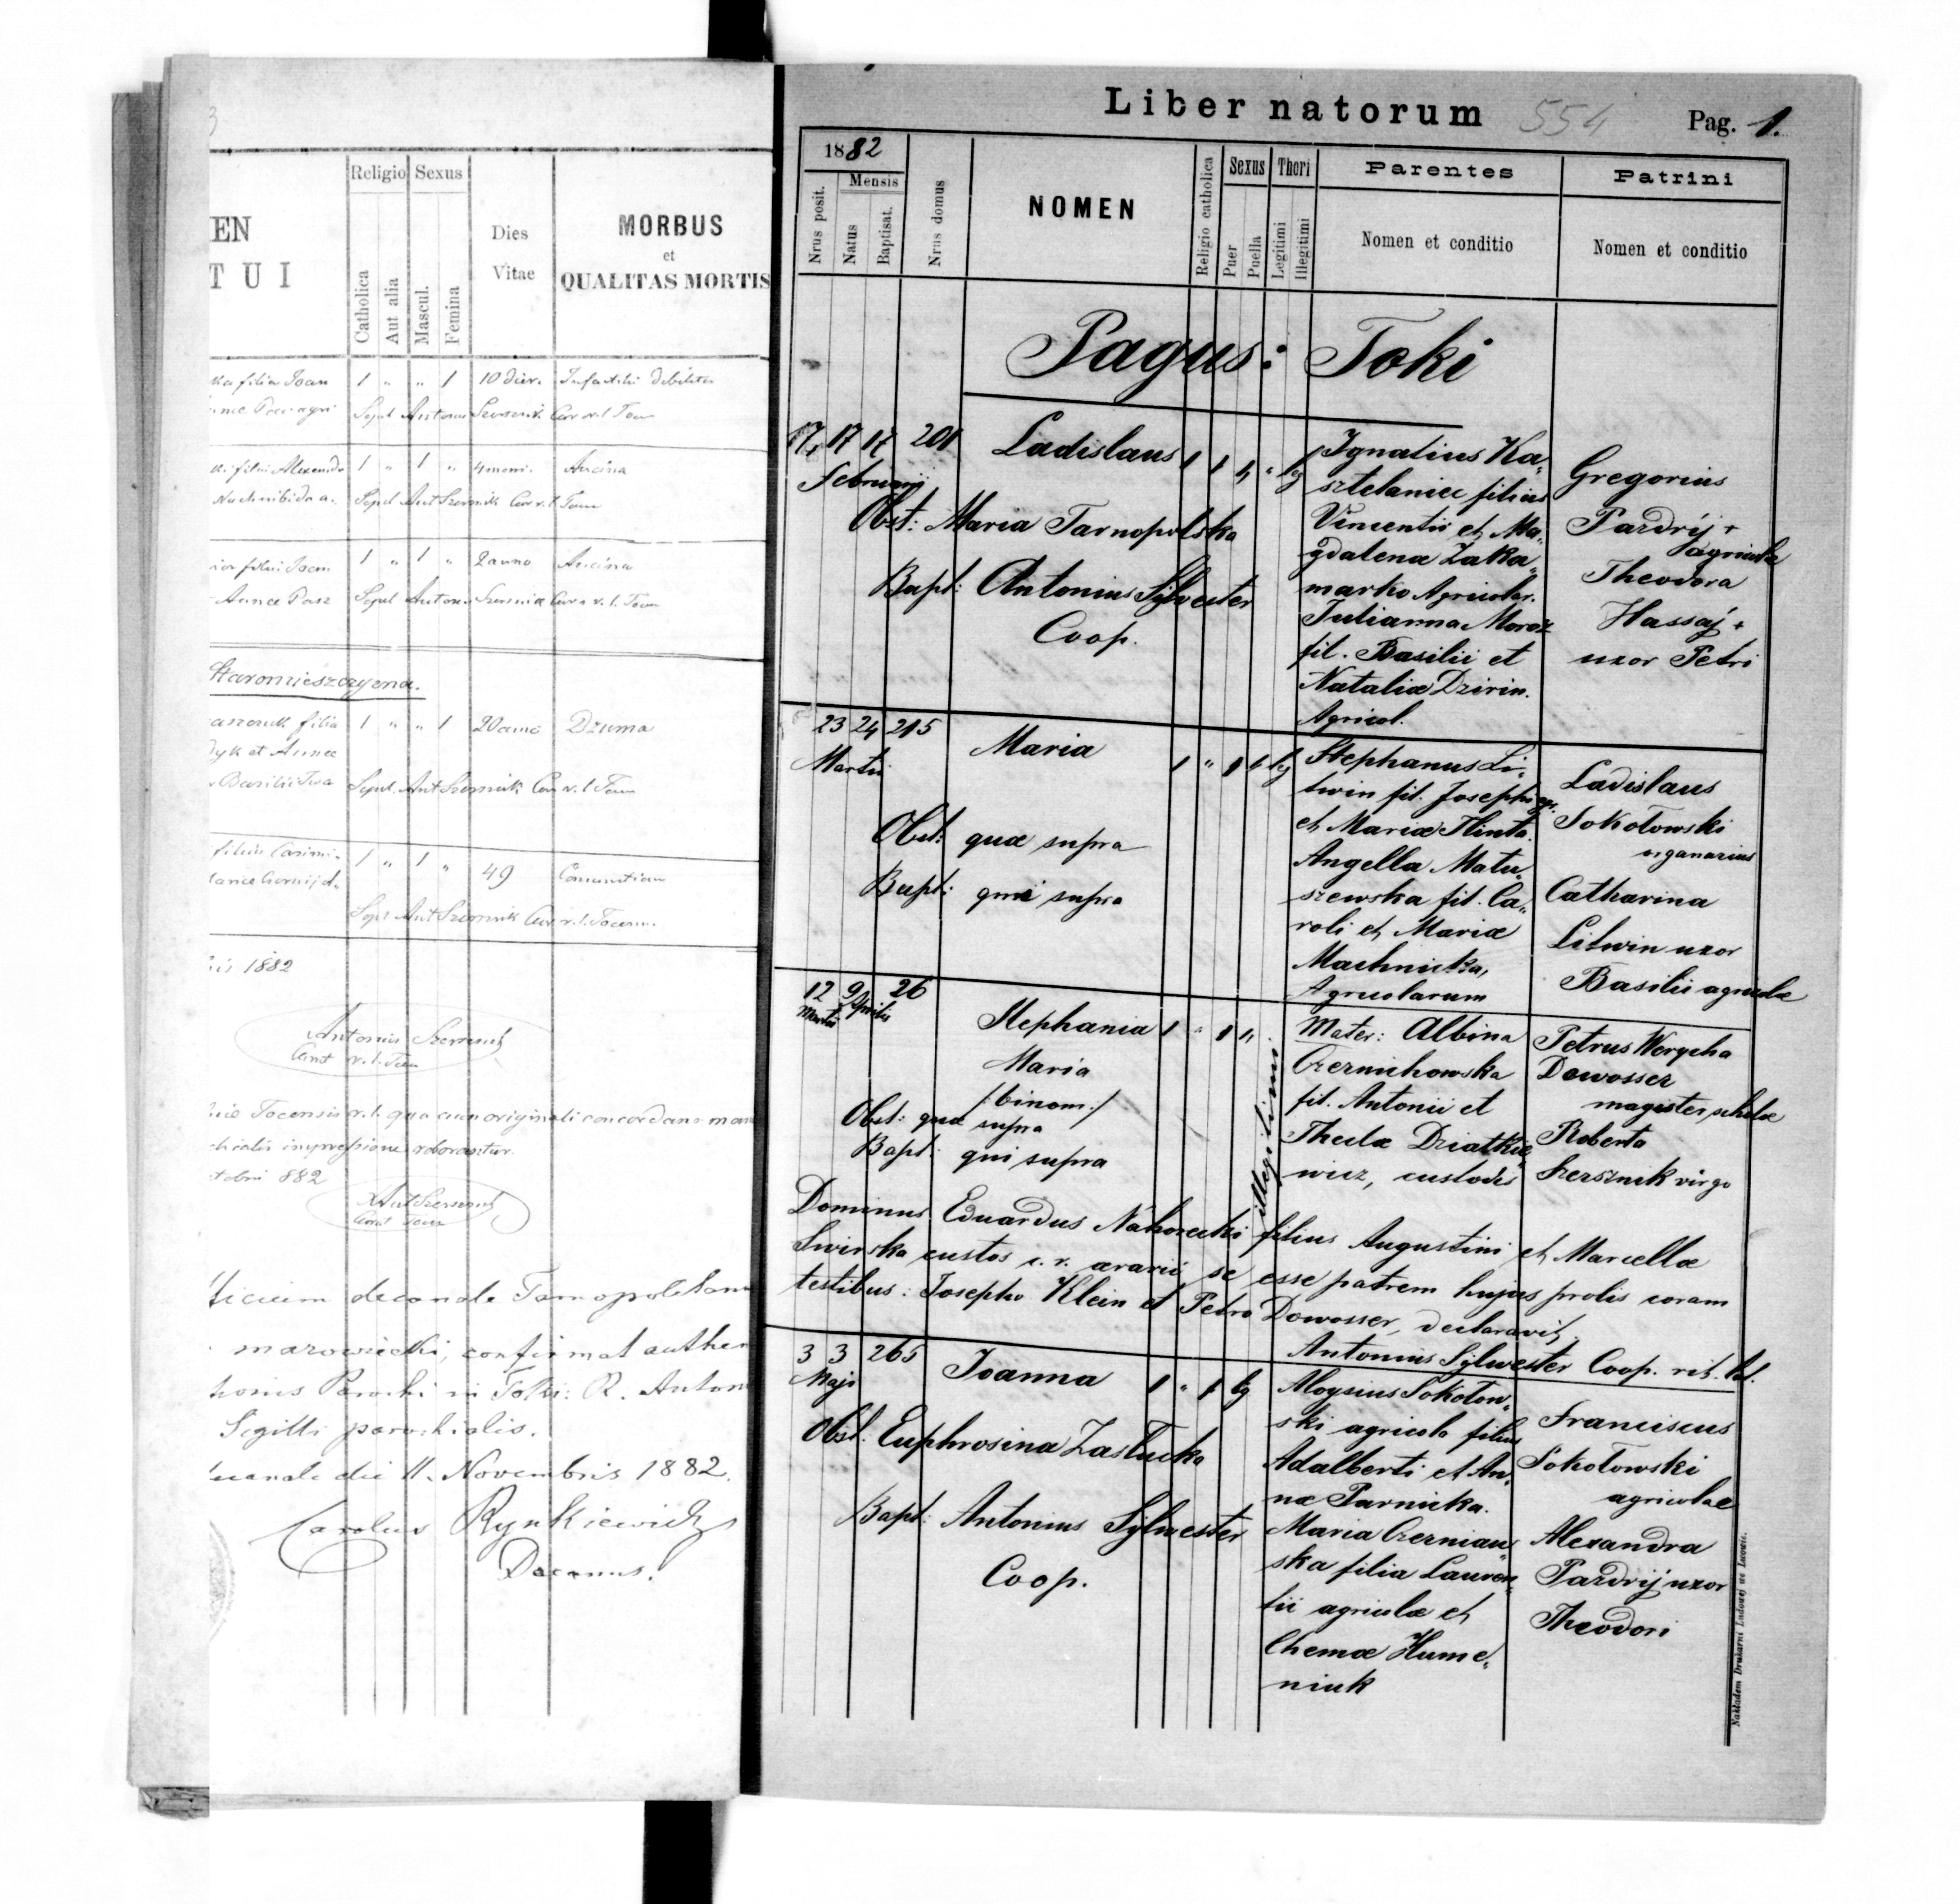 Religio Sexus
EN
TUI
Catholica
Aut alia
Mascul.
Femina
Dies
Vitae
MORBUS
et
QUALITAS MORTIS
ka filia Joan 1 " " 1 10 dier. Infantili debilitas
Sepul Antoni Cur r. l. Tocu
ki filii Alexandr 1 " 1 " 4 mens. Ancina
Sepul Ant Cur r. l. Tocu
filii Joan 1 " 1 " 2 anno Ancina
Annae Pasz Sepul Antoni Cur r. l. Tocu
Staromieszczyzna.
filia 1 " " 1 20 anno Dżuma
dyk et Annae
Basilii Iwa Sepul. Ant Cur r. l. Tocu
filius Casimi- 1 " 1 " 49
Sepul Ant Cur r. l. Tocen.
is 1882
Antonius
r. l. Tocu
Tocensis r. l. qua cum originali concordans man
impressione roborantur.
tobris 882
Ant
Tocu
ficium decanale Tarnopoliham
marowiecki, confirmat authen
Parochi in Toki: R. Anton
Sigilli parochialis.
canale die 11. Novembris 1882.
Carolus Rynkiewicz
Decanus.
Liber natorum 554 Pag. 1.
1882
Mensis
Nrus posit.
Natus
Baptisat.
Nrus domus
NOMEN
Religio catholica
Sexus
Puer
Puella
Thori
Legitimi
Illegitimi
Parentes
Nomen et conditio
Patrini
Nomen et conditio
Pagus: Toki
17, 17 17 201
Februarij
Ladislaus 1 1 " " leg
Obst: Maria Tarnopolska
Bapt: Antonius Sylvester
Coop.
Ignatius Ka„
sztelaniec filius
Vincentii et Ma„
gdalena Zaka„
marko Agricolar.
Julianna Moroz
fil. Basilii et
Nataliæ Dzirin.
Agricol.
Gregorius
Pazdrij +
agricola
Theodora
Hassaj +
uxor Petri
23 24 215
Martii
Maria 1 " 1 " leg
Obst: quæ supra
Bapt: qui supra
Stephanus Li„
twin fil. Josephi agr.
et Mariæ Hinta.
Angella Matu„
szewska fil. Ca„
roli et Mariæ
Machnicka,
Agricolarum
Ladislaus
Sokołowski
organarius
Catharina
Litwin uxor
Basilii agricolæ
12 9 26
Martii Aprilis
Stephania 1 " 1 "
Maria
/:binom:/
Obst: quæ supra
Bapt: qui supra
illegitimi
Mater: Albina
Czernichowska
fil. Antonii et
Theclæ Dziatkie„
wicz, custodis
Petrus Wergcha
Dowosser
magister scholæ
Roberta
Szersznik virgo
Dominus Eduardus Nahorecki filius Augustini et Marcellæ
Swirska custos c. r. ærarii se esse patrem hujus prolis coram
testibus: Josepho Klein et Petro Dowosser, declaravit,
Antonius Sylwester Coop. rit. lat.
3 3 265
Maji
Joanna 1 " 1 leg
Obst: Euphrosina Zastucka
Bapt: Antonius Sylwester
Coop.
Aloysius Sokołow„
ski agricola filius
Adalberti et An„
næ Parnicka.
Maria Czernian„
ska filia Lauren„
tii agricolæ et
Chemæ Hume„
niuk
Franciscus
Sokołowski
agricolae
Alexandra
Pazdrij uxor
Theodori
Nakładem Drukarni Ludowej we Lwowie.